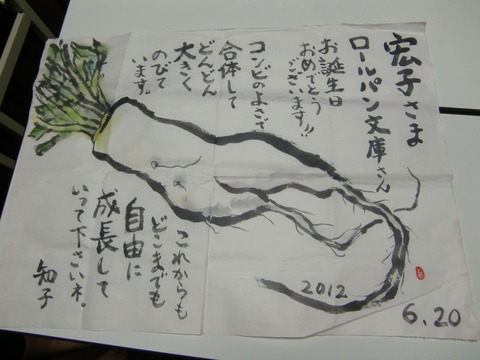 宏子さま
ロールパン文庫さん
お誕生日
おめでとう
ございます!!
コンビのよさで
合体して
どんどん
大きく
のびて
います。
これからも
どこまでも
自由に
成長して
いって下さいネ。
知子
2012
6.20